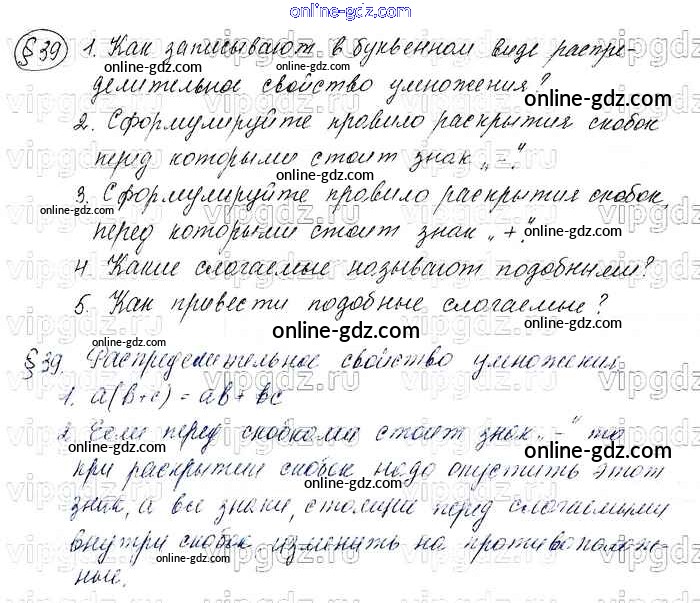 online-gdz.com
§39 1. Как записывают в буквенном виде распре-
делительное свойство умножения?
online-gdz.com
2. Сформулируйте правило раскрытия скобок
перед которыми стоит знак „-“.
online-gdz.com
3. Сформулируйте правило раскрытия скобок,
online-gdz.com
перед которыми стоит знак „+“.
online-gdz.com
4. Какие слогаемые называют подобными?
5. Как привести подобные слогаемые?
online-gdz.com
§39. Распределительное свойство умножения
online-gdz.com
1. a(b+c) = ab + bc
online-gdz.com
2. Если перед скобками стоит знак „-“ то
при раскрытии скобок надо опустить этот
знак, а все знаки, стоящие перед слогаемыми
внутри скобок изменить на противополож-
online-gdz.com
ные.
online-gdz.com
vipgdz.ru